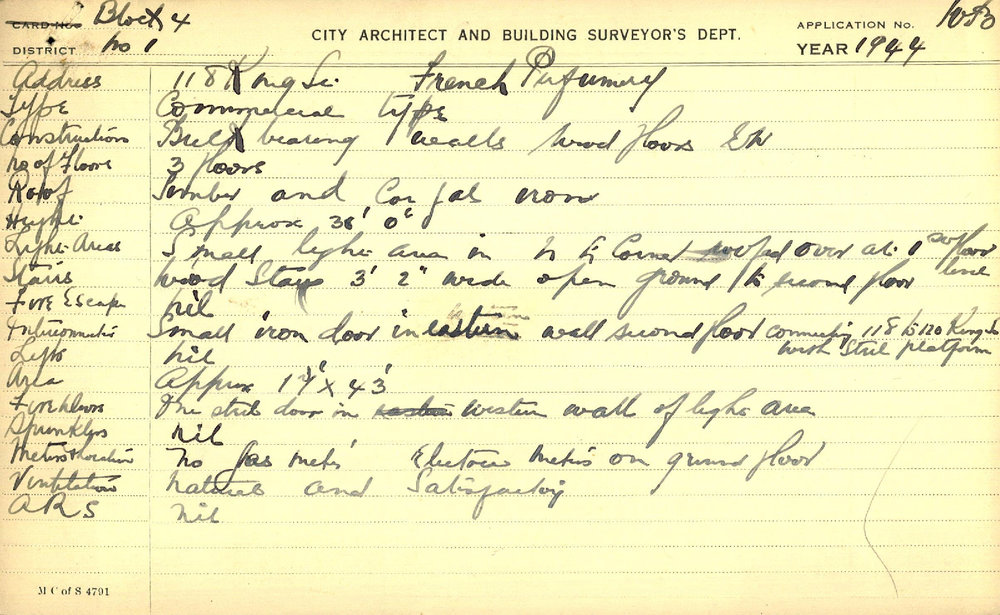 CARD No. Block 4
DISTRICT No 1
CITY ARCHITECT AND BUILDING SURVEYOR'S DEPT.
APPLICATION No.
YEAR 1944
Address 118 King St. French Perfumery
Type Commercial type
Construction Brick bearing walls wood floors
No of Floors 3 floors
Roof Timber and Cor gal iron
Height Approx 36' 0"
Light Areas Small light area in N E Corner roofed over at 1st floor level
Stairs Wood Stairs 3' 2" wide open ground to second floor
Fire Escape Nil
Interconnection Small iron door in eastern wall second floor connecting 118 to 120 King St
with Steel platform
Lifts Nil
Area Approx 17' x 43'
Fire doors One steel door in western wall of light area
Sprinklers Nil
Meters Location No gas meter Electric Meters on ground floor
Ventilation Natural and Satisfactory
A R S Nil
M C of S 4791